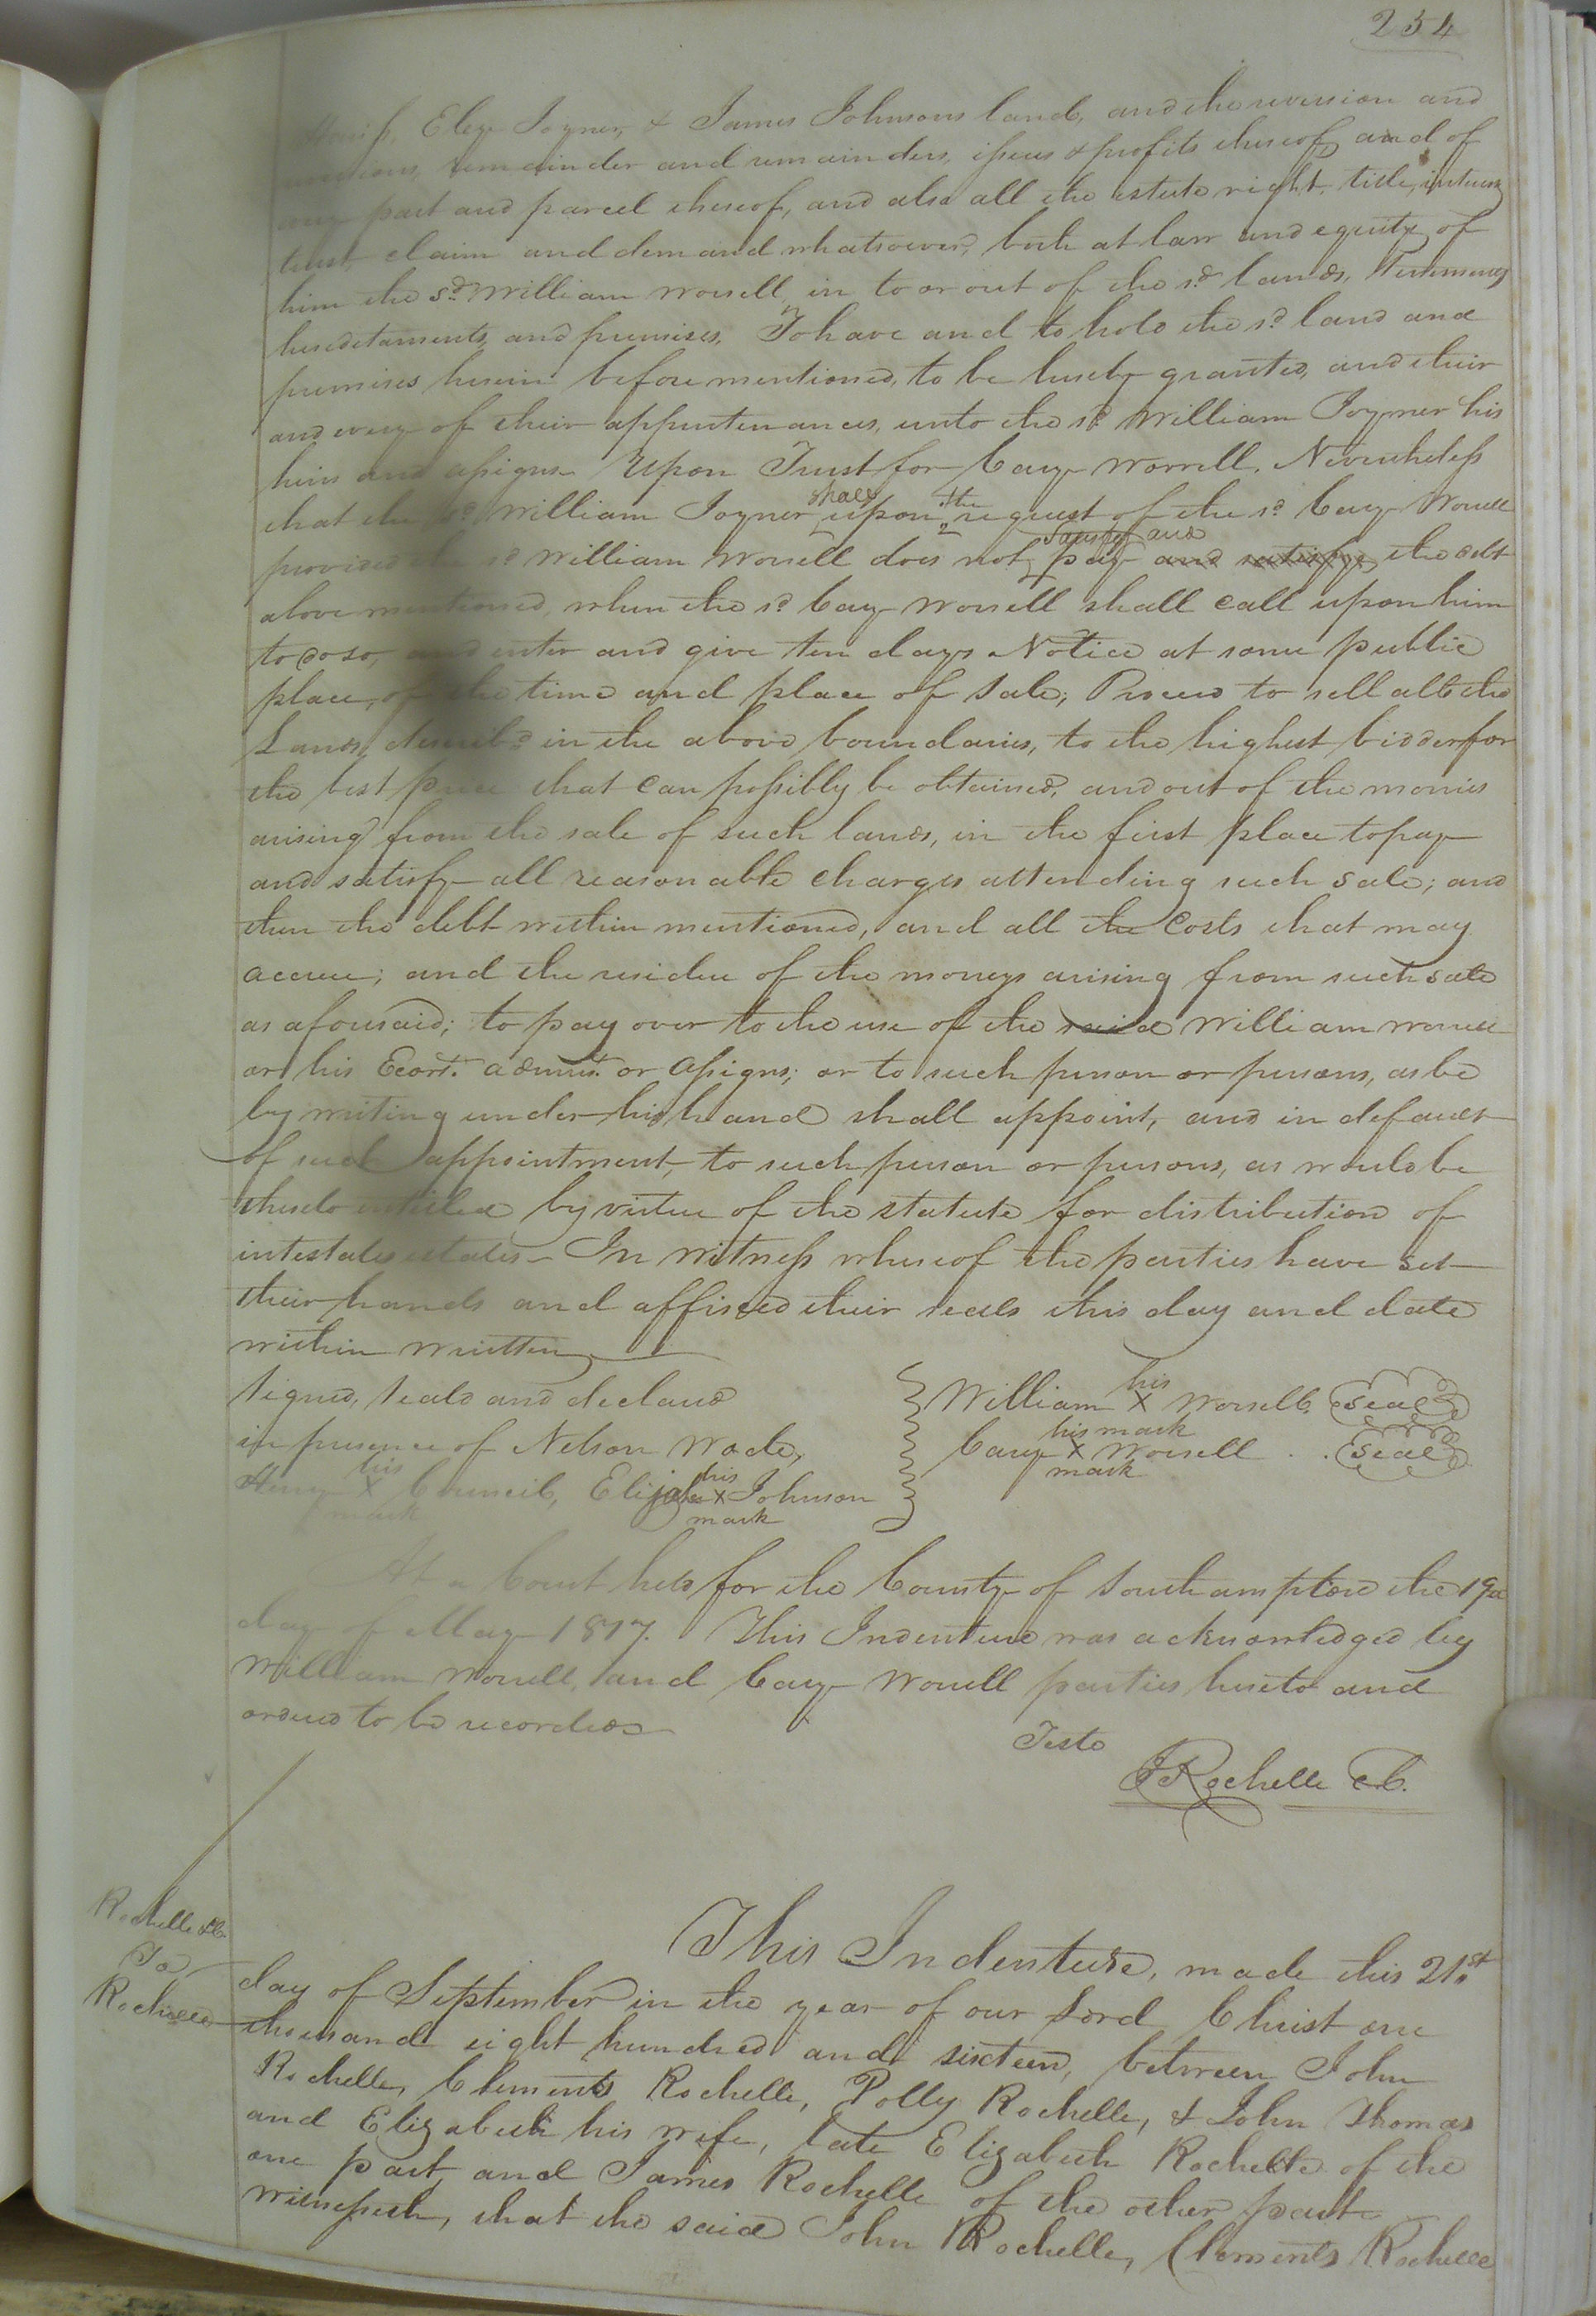 234
Elege Joyner, & James Johnsons land, and the reversion and
remainder and remainders, issues & profits thereof, and of
any part and parcel thereof, and also all the estate right, title, interest
trust, claim and demand whatsoever, both at law and equity of
him the sd. William Worrell, in to or out of the sd. lands, Tenements
heredetaments, and premises, To have and to hold the sd. land and
premises herein before mentioned, to be hereby granted, and their
and every of their appurtenances, unto the sd. William Joyner his
heirs and assigns Upon Trust for Cary Worrell, Nevertheless
that the sd. William Joyner shall upon the request of the sd. Cary Worrell
provided the sd. William Worrell does not satisfy and pay and satisfy, the debt
above mentioned, when the sd. Cary Worrell shall call upon him
to do so, and enter and give ten days Notice at some public
place, of the time and place of Sale; Proceed to sell all the
Lands, describd. in the above boundaries, to the highest bidder for
the best price that can possibly be obtained, and out of the monies
arising from the sale of such lands, in the first place to pay
and satisfy all reasonable charges attending such Sale; and
then the debt within mentioned, and all the Costs that may
accrue; and the residue of the moneys arising from such sale
as aforesaid; to pay over to the use of the said William Worrell
or his Exors. admrs. or assigns; or to such person or persons, as he
by writing under his hand shall appoint, and in default
of such appointment, to such person or persons, as would be
thereto entitled by virtue of the statute for distribution of
intestates estates - In Witness whereof the parties have set
their hands and affixed their seals this day and date
within written
Signed, Seald and declared
in presence of Nelson Wade,
Henry his X mark Council, Elijah his X mark Johnson
William his X mark Worrell. Seal
Cary his X mark Worrell . . Seal
At a Court held for the County of Southampton the 19th
day of May 1817. This Indenture was acknowledged by
William Worrell, and Cary Worrell parties hereto and
ordered to be recorded
Teste
J Rochelle Cl.
Rochelle &c.
To
Rochelle
This Indenture, made this 21st
day of September in the year of our Lord Christ one
thousand eight hundred and sixteen, between John
Rochelle, Clements Rochelle, Polly Rochelle, & John Thomas
and Elizabeth his wife, late Elizabeth Rochelle of the
one part, and James Rochelle of the other part
Witnesseth, that the said John Rochelle, Clements Rochelle